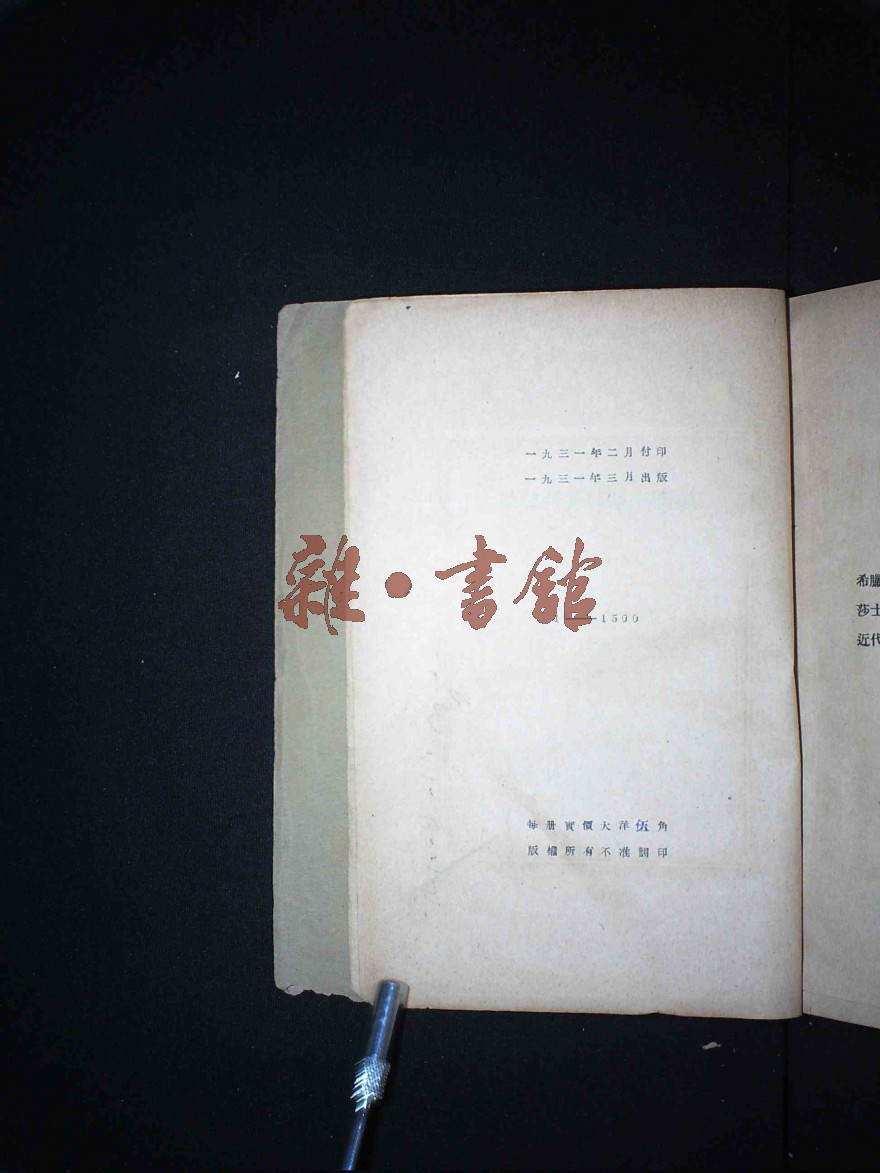 一九三一年二月付印
一九三一年三月出版
雜·書館
1——1500
每册實價大洋伍角
版權所有不准翻印
希臘
莎士
近代